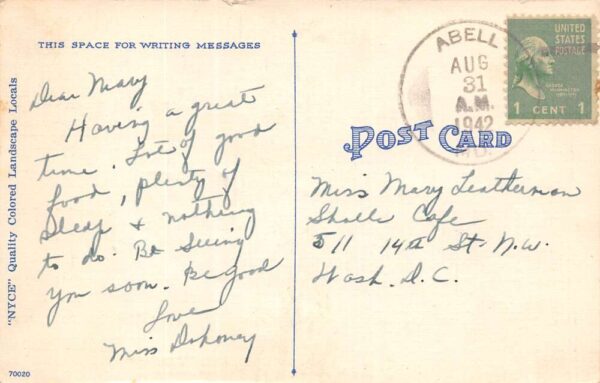 THIS SPACE FOR WRITING MESSAGES
Dear Mary
Having a great
time. Lots of good
food, plenty of
sleep & nothing
to do. Be seeing
you soon. Be good
Love
Miss Dohoney
"NYCE" Quality Colored Landscape Locals
70020
ABELL
AUG
31
A.M.
1942
MD.
UNITED
STATES
POSTAGE
1 CENT 1
POST CARD
Miss Mary Leatherman
Sholls Cafe
511 14th St. N.W.
Wash. D.C.